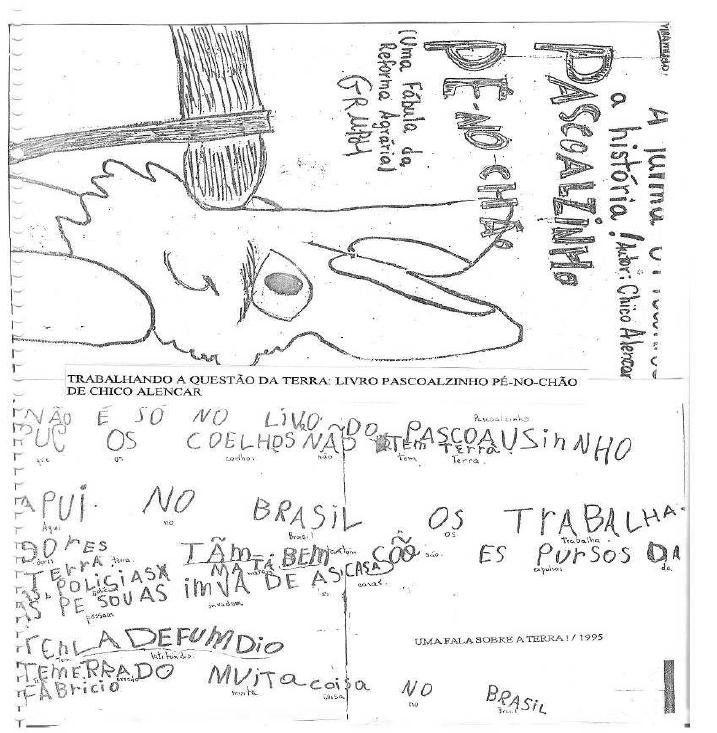 A turma
a história! / Autor: Chico Alencar
PASCOALZINHO
PÉ-NO-CHÃO
(Uma Fábula da
Reforma Agrária)
TRABALHANDO A QUESTÃO DA TERRA: LIVRO PASCOALZINHO PÉ-NO-CHÃO
DE CHICO ALENCAR
NÃO É SÓ NO LIVO DO PASCOAUSiNHO
Pascoalzinho
PUC OS COELHOS NÃO TEM TERRA
que os coelhos não tem Terra.
APUI NO BRASIL OS TRABALHA
Aqui no Brasil os Trabalha
DORES TÃM BEM SÕO ES PURSOS DA
dores também são expulsos da
TERRA MATA
terra
AS POLICIAS
AS PESOUAS iMVA DE AS CASAS
pessoas invadem as casas.
TEM LADEFUMDiO
Tem latifúndio
TEM ERRADO MUiTA coisa NO BRASiL
errado muita coisa no Brasil
FABricio
UMA FALA SOBRE A TERRA! / 1995